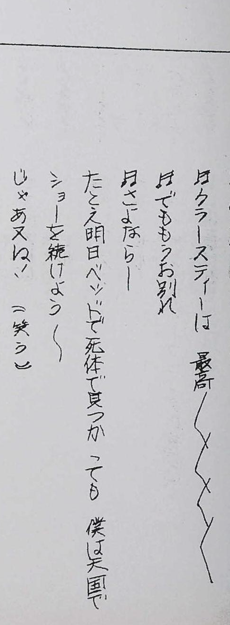 ♬クラースティーは 最高〜〜〜
♬でももうお別れ
♬さよならー
たとえ明日ベッドで死体で見つかっても 僕は天国で
ショーを続けよう〜
じゃあ又ね！（笑う）